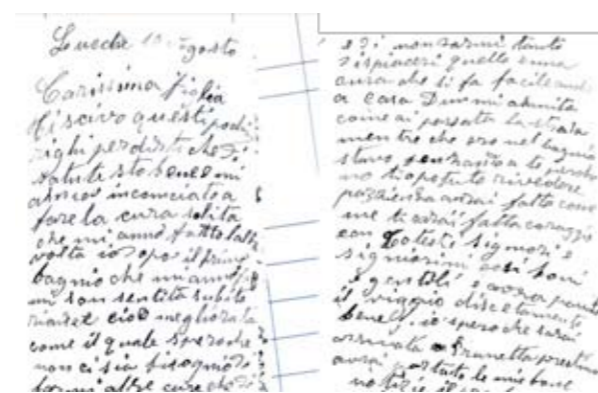 Lunedi 10 Agosto
Carissima figlia
Ti scrivo questi pochi
righi per dirti che di
salute sto bene e mi
anno incominciato a
fare la cura solita
che mi anno fatto laltra
volta io dopo il primo
bagnio che mi anno
mi son sentita subito
cioè megliorata
come il quale spero che
non ci sia bisogno di
farmi altre cure che
non farmi tanto
dispiaceri quello enna
cura che si fa facilmente
a casa Dimmi
come ai passata la strada
mentre che ero nel bagnio
stavo penzanto a te perche
no tio potuto rivedere
pazzienza avrai fatto come
me ti avrai fatta coraggio
con cotesti signiori e
signiorini cosi boni
e gentili e avrai
il viaggio discetamente
bene io spero che sarai
arrivata a Brunetta
avrai portato le mie bone
notizie il